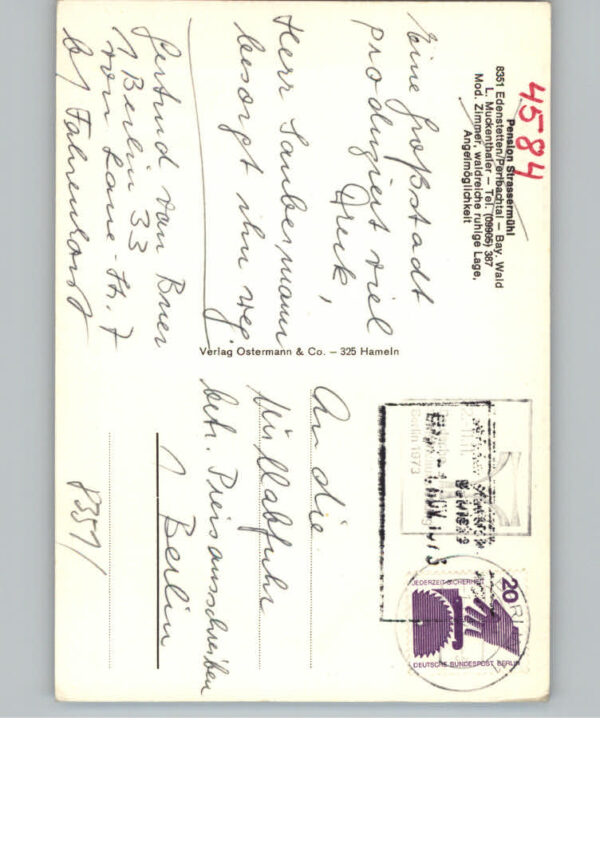 4584
Pension Strassermühl
8351 Edenstetten/Perlbachtal – Bay. Wald
L. Muckenthaler – Tel. (09905) 387
Mod. Zimmer, waldreiche ruhige Lage,
Angelmöglichkeit
Eine Großstadt
produziert viel
Dreck,
Herr Saubermann
besorgt ihn weg.
Gertrud van
1 Berlin 33
str. 7
b/ Fahrenhorst
Verlag Ostermann & Co. – 325 Hameln
An die
Müllabfuhr
betr. Preisausschreiben
1 Berlin
8351/
Berlin 1973
JEDERZEIT SICHERHEIT
20
DEUTSCHE BUNDESPOST BERLIN